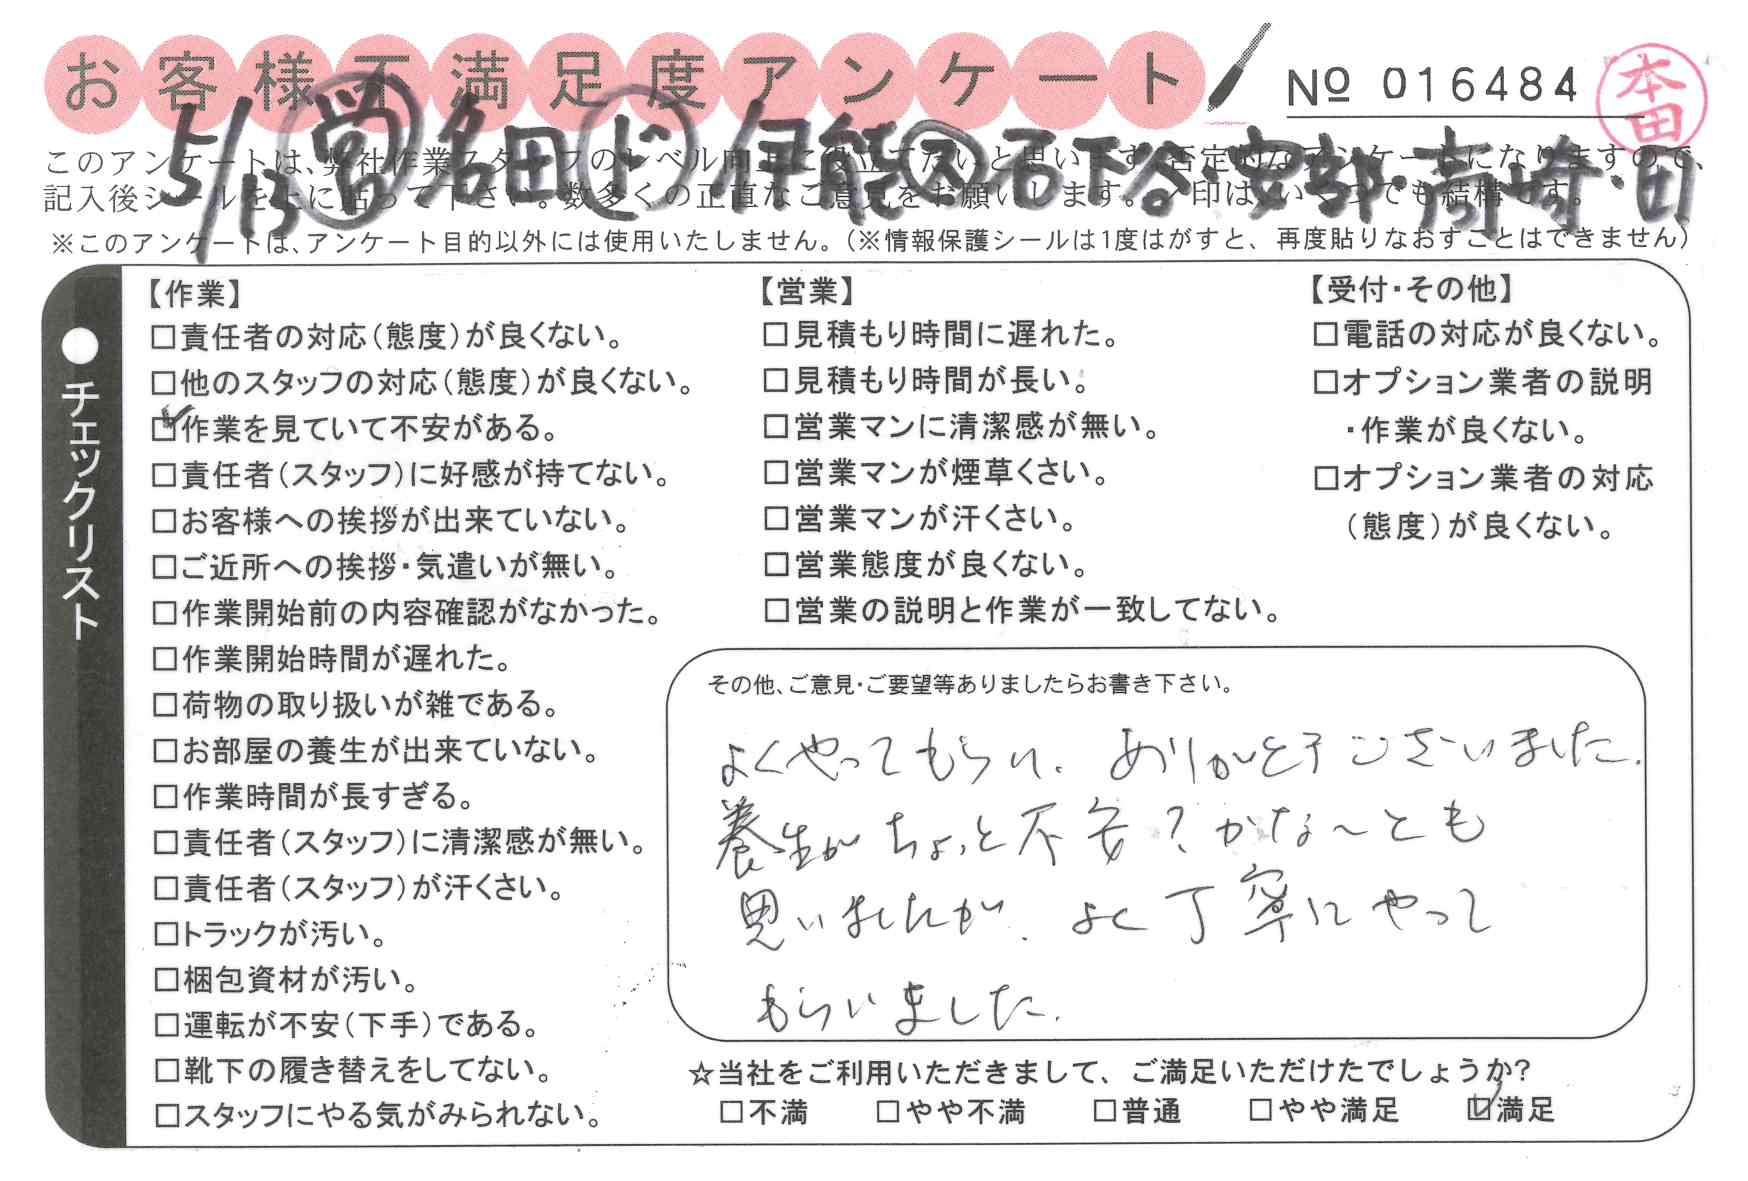 お客様不満足度アンケート
№ 016484
本田
5/13 営 名田 ド 伊能 ス 石下谷・安部・高崎・田
このアンケートは、弊社作業スタッフのレベル向上に役立てたいと思います。否定的なアンケートになりますので、
記入後シールを上に貼って下さい。数多くの正直なご意見をお願いします。✓印は、いくつでも結構です。
※このアンケートは、アンケート目的以外には使用いたしません。（※情報保護シールは1度はがすと、再度貼りなおすことはできません）
●チェックリスト
【作業】
□責任者の対応（態度）が良くない。
□他のスタッフの対応（態度）が良くない。
☑作業を見ていて不安がある。
□責任者（スタッフ）に好感が持てない。
□お客様への挨拶が出来ていない。
□ご近所への挨拶・気遣いが無い。
□作業開始前の内容確認がなかった。
□作業開始時間が遅れた。
□荷物の取り扱いが雑である。
□お部屋の養生が出来ていない。
□作業時間が長すぎる。
□責任者（スタッフ）に清潔感が無い。
□責任者（スタッフ）が汗くさい。
□トラックが汚い。
□梱包資材が汚い。
□運転が不安（下手）である。
□靴下の履き替えをしてない。
□スタッフにやる気がみられない。
【営業】
□見積もり時間に遅れた。
□見積もり時間が長い。
□営業マンに清潔感が無い。
□営業マンが煙草くさい。
□営業マンが汗くさい。
□営業態度が良くない。
□営業の説明と作業が一致してない。
【受付・その他】
□電話の対応が良くない。
□オプション業者の説明
・作業が良くない。
□オプション業者の対応
（態度）が良くない。
その他、ご意見・ご要望等ありましたらお書き下さい。
よくやってもらい、ありがとうございました。
養生がちょっと不安？かな～とも
思いましたが、よく丁寧にやって
もらいました。
☆当社をご利用いただきまして、ご満足いただけたでしょうか?
□不満 □やや不満 □普通 □やや満足 ☑満足